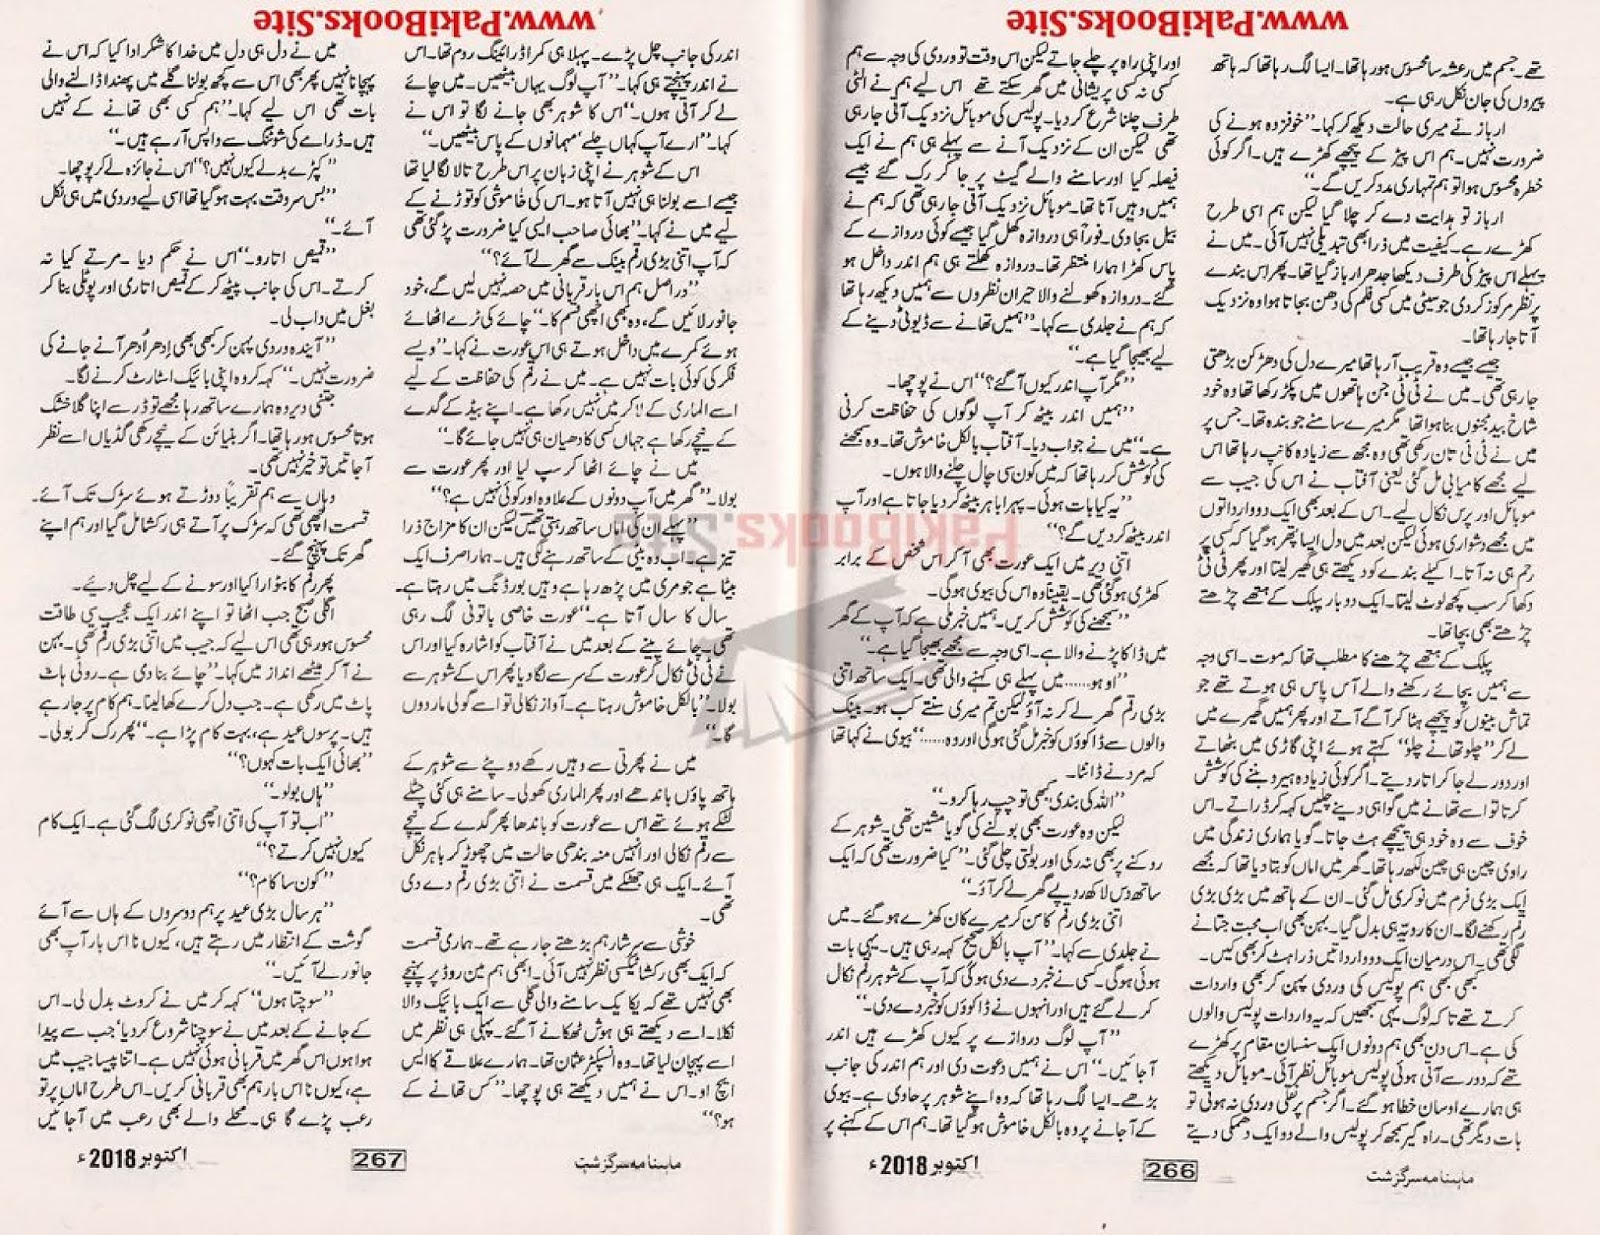 www.PakiBooks.Site
تھے۔ جسم میں رعشہ سا محسوس ہو رہا تھا۔ ایسا لگ رہا تھا کہ ہاتھ
پیروں کی جان نکل رہی ہے۔
ارباز نے میری حالت دیکھ کر کہا۔ ”خوفزدہ ہونے کی
ضرورت نہیں۔ ہم اس پیڑ کے پیچھے کھڑے ہیں۔ اگر کوئی
خطرہ محسوس ہوا تو ہم تمہاری مدد کریں گے۔“
ارباز تو ہدایت دے کر چلا گیا لیکن ہم اسی طرح
کھڑے رہے۔ کیفیت میں ذرا بھی تبدیلی نہیں آئی۔ میں نے
پہلے اس پیڑ کی طرف دیکھا جدھر ارباز گیا تھا۔ پھر اس بندے
پر نظر مرکوز کر دی جو سیٹی میں کسی فلم کی دھن بجاتا ہوا وہ نزدیک
آتا جا رہا تھا۔
جیسے جیسے وہ قریب آ رہا تھا میرے دل کی دھڑکن بڑھتی
جا رہی تھی۔ میں نے ٹی ٹی جن ہاتھوں میں پکڑ رکھا تھا وہ خود
شاخ بید مجنوں بنا ہوا تھا مگر میرے سامنے جو بندہ تھا۔ جس پر
میں نے ٹی ٹی تان رکھی تھی وہ مجھ سے زیادہ کانپ رہا تھا اس
لیے مجھے کامیابی مل گئی یعنی آفتاب نے اس کی جیب سے
موبائل اور پرس نکال لیے۔ اس کے بعد بھی ایک دو وارداتوں
میں مجھے دشواری ہوئی لیکن بعد میں دل ایسا پتھر ہو گیا کہ کسی پر
رحم ہی نہ آتا۔ اکیلے بندے کو دیکھتے ہی گھیر لیتا اور پھر ٹی ٹی
دکھا کر سب کچھ لوٹ لیتا۔ ایک دو بار پبلک کے ہتھے چڑھتے
چڑھتے بھی بچا تھا۔
پبلک کے ہتھے چڑھنے کا مطلب تھا کہ موت۔ اسی وجہ
سے ہمیں بچائے رکھنے والے آس پاس ہی ہوتے تھے جو
تماش بینوں کو پیچھے ہٹا کر آگے آتے اور پھر ہمیں گھیرے میں
لے کر ”چلو تھانے چلو“ کہتے ہوئے اپنی گاڑی میں بٹھاتے
اور دور لے جا کر اتار دیتے۔ اگر کوئی زیادہ ہیرو بننے کی کوشش
کرتا تو اسے تھانے میں گواہی دینے چلیں کہہ کر ڈراتے۔ اس
خوف سے وہ خود ہی پیچھے ہٹ جاتا۔ گویا ہماری زندگی میں
راوی چین ہی چین لکھ رہا تھا۔ گھر میں اماں کو بتا دیا تھا کہ مجھے
ایک بڑی فرم میں نوکری مل گئی۔ ان کے ہاتھ میں بڑی بڑی
رقم رکھنے لگا۔ ان کا رویہ ہی بدل گیا۔ بہن بھی اب محبت جتانے
لگی تھی۔ اس درمیان ایک دو وارداتیں ذرا ہٹ کر بھی کیں۔
کبھی کبھی ہم پولیس کی وردی پہن کر بھی واردات
کرتے تھے تا کہ لوگ یہی سمجھیں کہ یہ واردات پولیس والوں
کی ہے۔ اس دن بھی ہم دونوں ایک سنسان مقام پر کھڑے
تھے کہ دور سے آتی ہوئی پولیس موبائل نظر آئی۔ موبائل دیکھتے
ہی ہمارے اوسان خطا ہو گئے۔ اگر جسم پر نقلی وردی نہ ہوتی تو
بات دیگر تھی۔ راہ گیر سمجھ کر پولیس والے دو ایک دھمکی دیتے
اور اپنی راہ پر چلے جاتے لیکن اس وقت تو وردی کی وجہ سے ہم
کسی نہ کسی پریشانی میں گھر سکتے تھے اس لیے ہم نے الٹی
طرف چلنا شروع کر دیا۔ پولیس کی موبائل نزدیک آتی جا رہی
تھی لیکن ان کے نزدیک آنے سے پہلے ہی ہم نے ایک
فیصلہ کیا اور سامنے والے گیٹ پر جا کر رک گئے جیسے
ہمیں وہیں آنا تھا۔ موبائل نزدیک آتی جا رہی تھی کہ ہم نے
بیل بجا دی۔ فوراً ہی دروازہ کھل گیا جیسے کوئی دروازے کے
پاس کھڑا ہمارا منتظر تھا۔ دروازہ کھلتے ہی ہم اندر داخل ہو
گئے۔ دروازہ کھولنے والا حیران نظروں سے ہمیں دیکھ رہا تھا
کہ ہم نے جلدی سے کہا۔ ”ہمیں تھانے سے ڈیوٹی دینے کے
لیے بھیجا گیا ہے۔“
”مگر آپ اندر کیوں آ گئے؟“ اس نے پوچھا۔
”ہمیں اندر بیٹھ کر آپ لوگوں کی حفاظت کرنی
ہے۔“ میں نے جواب دیا۔ آفتاب بالکل خاموش تھا۔ وہ سمجھنے
کی کوشش کر رہا تھا کہ میں کون سی چال چلنے والا ہوں۔
”یہ کیا بات ہوئی۔ پہرا باہر بیٹھ کر دیا جاتا ہے اور آپ
اندر بیٹھ کر دیں گے؟“
اتنی دیر میں ایک عورت بھی آ کر اس شخص کے برابر
کھڑی ہو گئی تھی۔ یقیناً وہ اس کی بیوی ہو گی۔
”سمجھنے کی کوشش کریں۔ ہمیں خبر ملی ہے کہ آپ کے گھر
میں ڈاکا پڑنے والا ہے۔ اسی وجہ سے مجھے بھیجا گیا ہے۔“
”اوہو...... میں پہلے ہی کہنے والی تھی۔ ایک ساتھ اتنی
بڑی رقم گھر لے کر نہ آؤ لیکن تم میری سنتے کب ہو۔ بینک
والوں سے ڈاکوؤں کو خبر مل گئی ہو گی اور وہ......“ بیوی نے کہا تھا
کہ مرد نے ڈانٹا۔
”اللہ کی بندی کبھی تو چپ رہا کرو۔“
لیکن وہ عورت بھی بولنے کی گویا مشین تھی۔ شوہر کے
روکنے پر بھی نہ رکی اور بولتی چلی گئی۔ ”کیا ضرورت تھی کہ ایک
ساتھ دس لاکھ روپے گھر لے کر آؤ۔“
اتنی بڑی رقم کا سن کر میرے کان کھڑے ہو گئے۔ میں
نے جلدی سے کہا۔ ”آپ بالکل صحیح کہہ رہی ہیں۔ یہی بات
ہوئی ہو گی۔ کسی نے خبر دے دی ہو گی کہ آپ کے شوہر رقم نکال
کر لے گئے ہیں اور انہوں نے ڈاکوؤں کو خبر دے دی۔“
”آپ لوگ دروازے پر کیوں کھڑے ہیں اندر
آ جائیں۔“ اس نے ہمیں دعوت دی اور ہم اندر کی جانب
بڑھے۔ ایسا لگ رہا تھا کہ وہ اپنے شوہر پر حاوی ہے۔ بیوی
کے آ جانے پر وہ بالکل خاموش ہو گیا تھا۔ ہم اس کے کہنے پر
ماہنامہ سرگزشت
266
اکتوبر 2018ء
www.PakiBooks.Site
اندر کی جانب چل پڑے۔ پہلا ہی کمرا ڈرائینگ روم تھا۔ اس
نے اندر پہنچتے ہی کہا۔ ”آپ لوگ یہاں بیٹھیں۔ میں چائے
لے کر آتی ہوں۔“ اس کا شوہر بھی جانے لگا تو اس نے
کہا۔ ”ارے آپ کہاں چلے مہمانوں کے پاس بیٹھیں۔“
اس کے شوہر نے اپنی زبان پر اس طرح تالا لگا لیا تھا
جیسے اسے بولنا ہی نہیں آتا ہو۔ اس کی خاموشی کو توڑنے کے
لیے میں نے کہا۔ ”بھائی صاحب ایسی کیا ضرورت پڑ گئی تھی
کہ آپ اتنی بڑی رقم بینک سے گھر لے آئے؟“
”دراصل ہم اس بار قربانی میں حصہ نہیں لیں گے، خود
جانور لائیں گے، وہ بھی اچھی قسم کا۔“ چائے کی ٹرے اٹھائے
ہوئے کمرے میں داخل ہوتے ہی اس عورت نے کہا۔ ”ویسے
فکر کی کوئی بات نہیں ہے۔ میں نے رقم کی حفاظت کے لیے
اسے الماری کے لاکر میں نہیں رکھا ہے۔ اپنے بیڈ کے گدے
کے نیچے رکھا ہے جہاں کسی کا دھیان ہی نہیں جائے گا۔“
میں نے چائے اٹھا کر سپ لیا اور پھر عورت سے
بولا۔ ”گھر میں آپ دونوں کے علاوہ اور کوئی نہیں ہے؟“
”پہلے ان کی اماں ساتھ رہتی تھیں لیکن ان کا مزاج ذرا
تیز ہے۔ اب وہ بیٹی کے ساتھ رہنے لگی ہیں۔ ہمارا صرف ایک
بیٹا ہے جو مری میں پڑھ رہا ہے وہیں بورڈنگ میں رہتا ہے۔
سال کا سال آتا ہے۔“ عورت خاصی باتونی لگ رہی
تھی۔ چائے پینے کے بعد میں نے آفتاب کو اشارہ کیا اور اس
نے ٹی ٹی نکال کر عورت کے سر سے لگا دیا پھر اس کے شوہر سے
بولا۔ ”بالکل خاموش رہنا ہے۔ آواز نکالی تو اسے گولی مار دوں
گا۔“
میں نے پھرتی سے وہیں رکھے دوپٹے سے شوہر کے
ہاتھ پاؤں باندھے اور پھر الماری کھولی۔ سامنے ہی کئی
لٹکے ہوئے تھے اس سے عورت کو باندھا پھر گدے کے نیچے
سے رقم نکالی اور انہیں منہ بندھی حالت میں چھوڑ کر باہر نکل
آئے۔ ایک ہی جھٹکے میں قسمت نے اتنی بڑی رقم دے دی
تھی۔
خوشی سے سرشار ہم بڑھتے جا رہے تھے۔ ہماری قسمت
کہ ایک بھی رکشا ٹیکسی نظر نہیں آئی۔ ابھی ہم مین روڈ پر پہنچے
بھی نہیں تھے کہ یکایک سامنے والی گلی سے ایک بائیک والا
نکلا۔ اسے دیکھتے ہی ہوش ٹھکانے آ گئے۔ پہلی ہی نظر میں
اسے پہچان لیا تھا۔ وہ انسپکٹر عثمان تھا۔ ہمارے علاقے کا ایس
ایچ او۔ اس نے ہمیں دیکھتے ہی پوچھا۔ ”کس تھانے کے
ہو؟“
میں نے دل ہی دل میں خدا کا شکر ادا کیا کہ اس نے
پہچانا نہیں پھر بھی اس سے کچھ بولنا گلے میں پھندا ڈالنے والی
بات تھی اس لیے کہا۔ ”ہم کسی بھی تھانے کے نہیں
ہیں۔ ڈرامے کی شوٹنگ سے واپس آ رہے ہیں۔“
”کپڑے بدلے کیوں نہیں؟“ اس نے جائزہ لے کر پوچھا۔
”بس سر وقت بہت ہو گیا تھا اسی لیے وردی میں ہی نکل
آئے۔“
”قمیص اتارو۔“ اس نے حکم دیا۔ مرتے کیا نہ
کرتے۔ اس کی جانب پیٹھ کر کے قمیص اتاری اور پوٹلی بنا کر
بغل میں داب لی۔
”آیندہ وردی پہن کر کبھی بھی اِدھر اُدھر آنے جانے کی
ضرورت نہیں۔“ کہہ کر وہ اپنی بائیک اسٹارٹ کرنے لگا۔
جتنی دیر وہ ہمارے ساتھ رہا مجھے تو ڈر سے اپنا گلا خشک
ہوتا محسوس ہو رہا تھا۔ اگر بنیائن کے نیچے رکھی گڈیاں اسے نظر
آ جاتیں تو خیر نہیں تھی۔
وہاں سے ہم تقریباً دوڑتے ہوئے سڑک تک آئے۔
قسمت اچھی تھی کہ سڑک پر آتے ہی رکشا مل گیا اور ہم اپنے
گھر تک پہنچ گئے۔
پھر رقم کا بٹوارا کیا اور سونے کے لیے چل دیے۔
اگلی صبح جب اٹھا تو اپنے اندر ایک عجیب سی طاقت
محسوس ہو رہی تھی اس لیے کہ جیب میں اتنی بڑی رقم تھی۔ بہن
نے آ کر میٹھے انداز میں کہا۔ ”چائے بنا دی ہے۔ روٹی ہاٹ
پاٹ میں رکھی ہے۔ جب دل کرے کھا لینا۔ ہم کام پر جا رہے
ہیں۔ پرسوں عید ہے، بہت کام پڑا ہے۔“ پھر رک کر بولی۔
”بھائی ایک بات کہوں؟“
”ہاں بولو۔“
”اب تو آپ کی اتنی اچھی نوکری لگ گئی ہے۔ ایک کام
کیوں نہیں کرتے؟“
”کون سا کام؟“
”ہر سال بڑی عید پر ہم دوسروں کے ہاں سے آئے
گوشت کے انتظار میں رہتے ہیں، کیوں نا اس بار آپ بھی
جانور لے آئیں۔“
”سوچتا ہوں“ کہہ کر میں نے کروٹ بدل لی۔ اس
کے جانے کے بعد میں نے سوچنا شروع کر دیا، جب سے پیدا
ہوا ہوں اس گھر میں قربانی ہوئی نہیں ہے۔ اتنا پیسا جیب میں
ہے، کیوں نا اس بار ہم بھی قربانی کریں۔ اس طرح اماں پر تو
رعب پڑے گا ہی۔ محلے والے بھی رعب میں آ جائیں
ماہنامہ سرگزشت
267
اکتوبر 2018ء
PakiBooks.Site